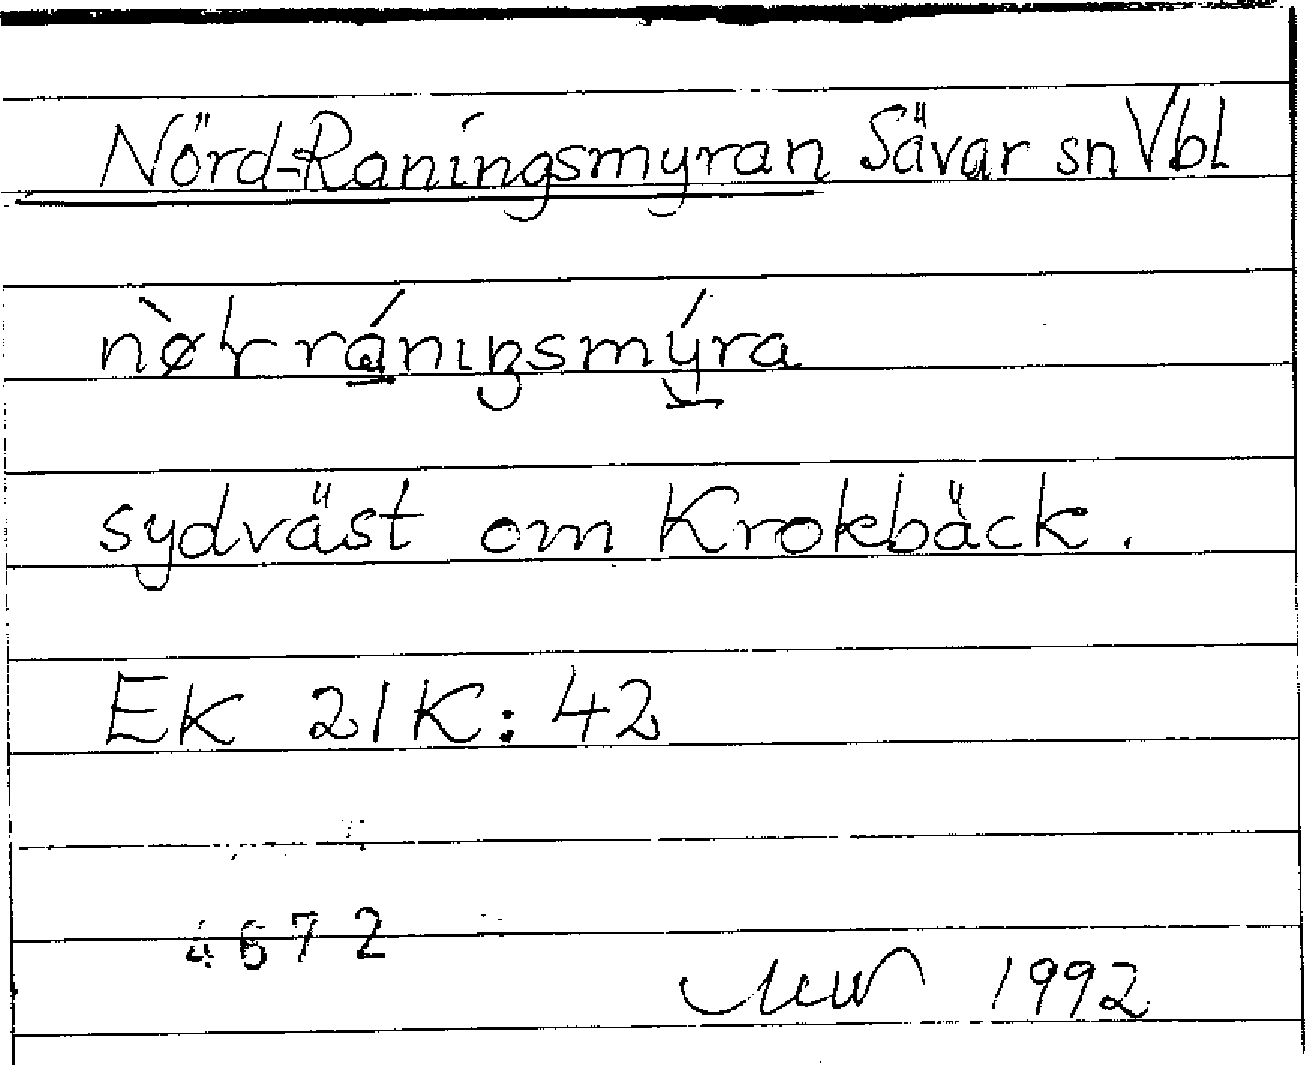 Nörd-Raningsmyran Sävar sn Vbl
sydväst om Krokbäck.
EK 21K: 42
4672
1992